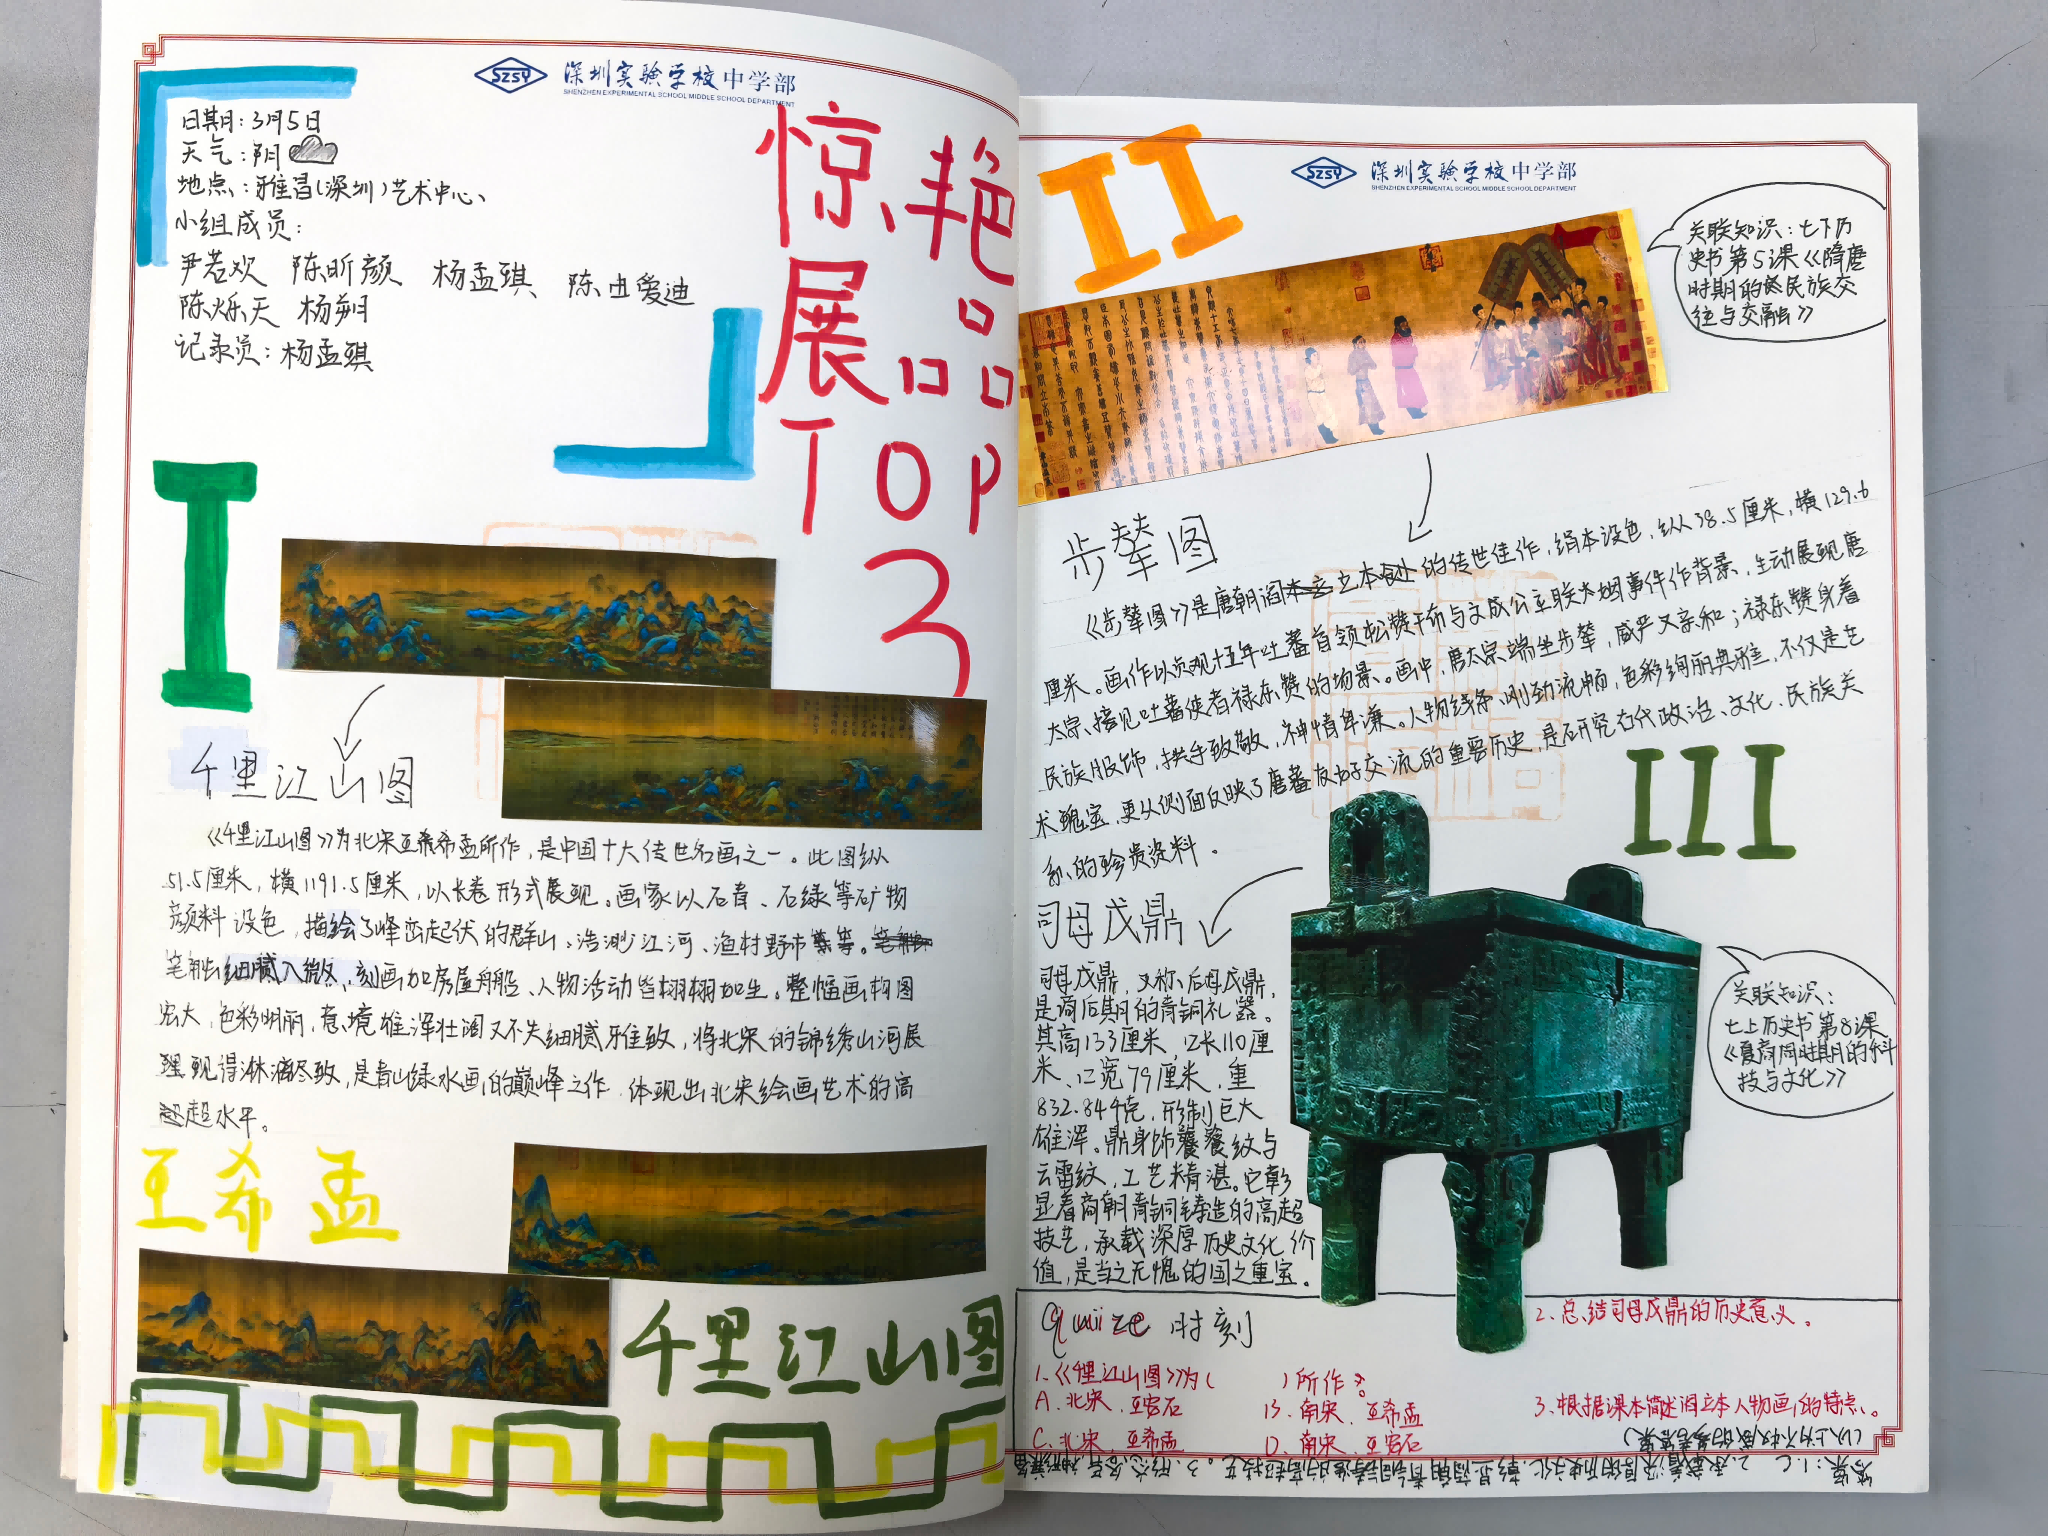 SZSY 深圳实验学校中学部
SHENZHEN EXPERIMENTAL SCHOOL MIDDLE SCHOOL DEPARTMENT
日期：3月5日
天气：阴
地点：雅昌(深圳)艺术中心
小组成员：
尹若欢 陈昕颜 杨孟琪 陈由爱迪
陈烁天 杨朔
记录员：杨孟琪
惊艳
展品
TOP
3
I
千里江山图
《千里江山图》为北宋王希孟所作，是中国十大传世名画之一。此图纵
51.5厘米，横1191.5厘米，以长卷形式展现。画家以石青、石绿等矿物
颜料设色，描绘了峰峦起伏的群山、浩渺江河、渔村野市等。
笔触细腻入微，刻画如房屋舟船、人物活动皆栩栩如生。整幅画构图
宏大，色彩明丽，意境雄浑壮阔又不失细腻雅致，将北宋的锦绣山河展
现得淋漓尽致，是青山绿水画的巅峰之作，体现出北宋绘画艺术的高
超水平。
王希孟
千里江山图
SZSY 深圳实验学校中学部
SHENZHEN EXPERIMENTAL SCHOOL MIDDLE SCHOOL DEPARTMENT
II
关联知识：七下历
史书第5课《隋唐
时期的民族交
往与交融》
步辇图
《步辇图》是唐朝阎立本的传世佳作，绢本设色，纵38.5厘米，横129.6
厘米。画作以贞观十五年吐蕃首领松赞干布与文成公主联姻事件作背景，生动展现唐
太宗接见吐蕃使者禄东赞的场景。画中，唐太宗端坐步辇，威严又亲和；禄东赞身着
民族服饰，拱手致敬，神情卑谦。人物线条刚劲流畅，色彩绚丽典雅，不仅是艺
术瑰宝，更从侧面反映了唐蕃友好交流的重要历史，是研究古代政治、文化、民族关
系的珍贵资料。
III
司母戊鼎
司母戊鼎，又称后母戊鼎，
是商后期的青铜礼器。
其高133厘米，口长110厘
米、口宽79厘米，重
832.84千克，形制巨大
雄浑。鼎身饰饕餮纹与
云雷纹，工艺精湛。它彰
显着商朝青铜铸造的高超
技艺，承载深厚历史文化价
值，是当之无愧的国之重宝。
关联知识：
七上历史书第8课
《夏商周时期的科
技与文化》
Quiize 时刻
1.《千里江山图》为( )所作？
A. 北宋，王安石 B. 南宋，王希孟
C. 北宋，王希孟 D. 南宋，王安石
2. 总结司母戊鼎的历史意义。
3. 根据课本简述阎立本人物画的特点。
(以上为不中文成的参考答案)
答案：1.C 2.承载着深厚的历史文化，彰显商朝青铜铸造的高超技艺。3.形态各异，神形兼备